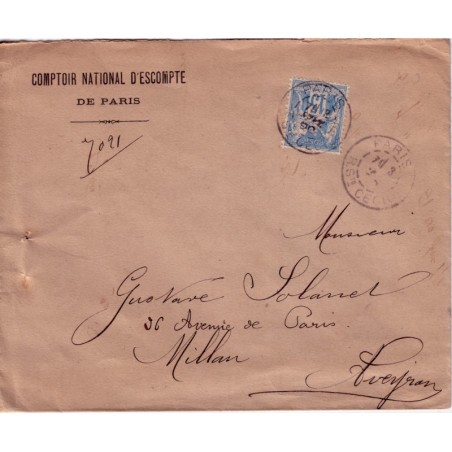 COMPTOIR NATIONAL D'ESCOMPTE
DE PARIS
7021
PARIS
PARIS
RSTE CECILE
Monsieur
Gustave Solanet
36 Avenue de Paris.
Millau
Aveyron